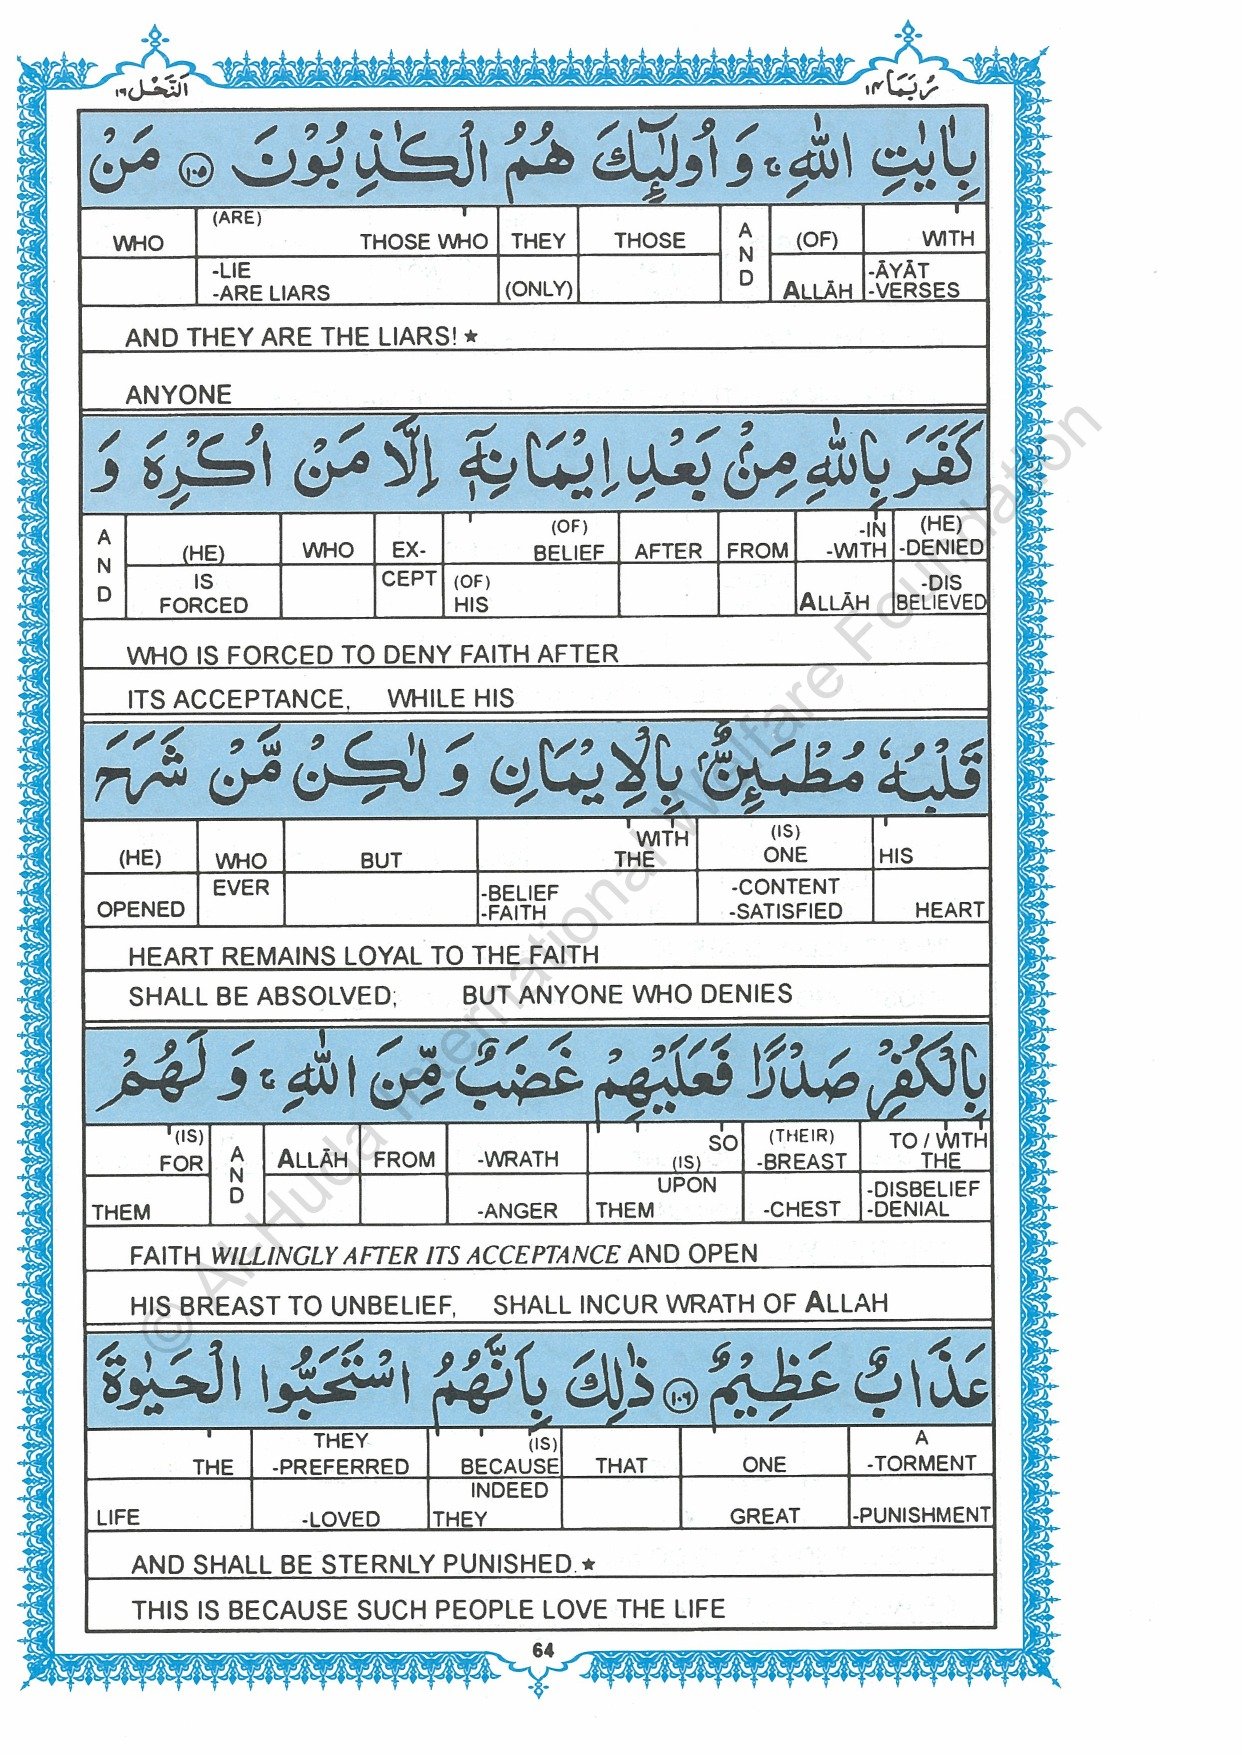 النَّحْل ١٦
رُبَمَا ١٤
بِاٰيٰتِ اللّٰهِ ۚ وَ اُولٰٓئِكَ هُمُ الْكٰذِبُوْنَ ١٠٥ مَنْ
WHO (ARE) THOSE WHO THEY THOSE AND (OF) WITH
-LIE -ARE LIARS (ONLY) ALLĀH -ĀYĀT -VERSES
AND THEY ARE THE LIARS! ★
ANYONE
كَفَرَ بِاللّٰهِ مِنْۢ بَعْدِ اِيْمَانِهٖٓ اِلَّا مَنْ اُكْرِهَ وَ
AND (HE) WHO EX- (OF) BELIEF AFTER FROM -IN -WITH (HE) -DENIED
IS FORCED CEPT (OF) HIS ALLĀH -DIS BELIEVED
WHO IS FORCED TO DENY FAITH AFTER
ITS ACCEPTANCE, WHILE HIS
قَلْبُهٗ مُطْمَئِنٌّۢ بِالْاِيْمَانِ وَ لٰكِنْ مَّنْ شَرَحَ
(HE) WHO BUT WITH THE (IS) ONE HIS
OPENED EVER -BELIEF -FAITH -CONTENT -SATISFIED HEART
HEART REMAINS LOYAL TO THE FAITH
SHALL BE ABSOLVED; BUT ANYONE WHO DENIES
بِالْكُفْرِ صَدْرًا فَعَلَيْهِمْ غَضَبٌ مِّنَ اللّٰهِ ۚ وَ لَهُمْ
(IS) FOR AND ALLĀH FROM -WRATH SO (IS) (THEIR) -BREAST TO / WITH THE
THEM -ANGER UPON THEM -CHEST -DISBELIEF -DENIAL
FAITH WILLINGLY AFTER ITS ACCEPTANCE AND OPEN
HIS BREAST TO UNBELIEF, SHALL INCUR WRATH OF ALLAH
عَذَابٌ عَظِيْمٌ ١٠٦ ذٰلِكَ بِاَنَّهُمُ اسْتَحَبُّوا الْحَيٰوةَ
THE THEY -PREFERRED (IS) BECAUSE THAT ONE A -TORMENT
LIFE -LOVED INDEED THEY GREAT -PUNISHMENT
AND SHALL BE STERNLY PUNISHED. ★
THIS IS BECAUSE SUCH PEOPLE LOVE THE LIFE
64
© Al-Huda International Welfare Foundation